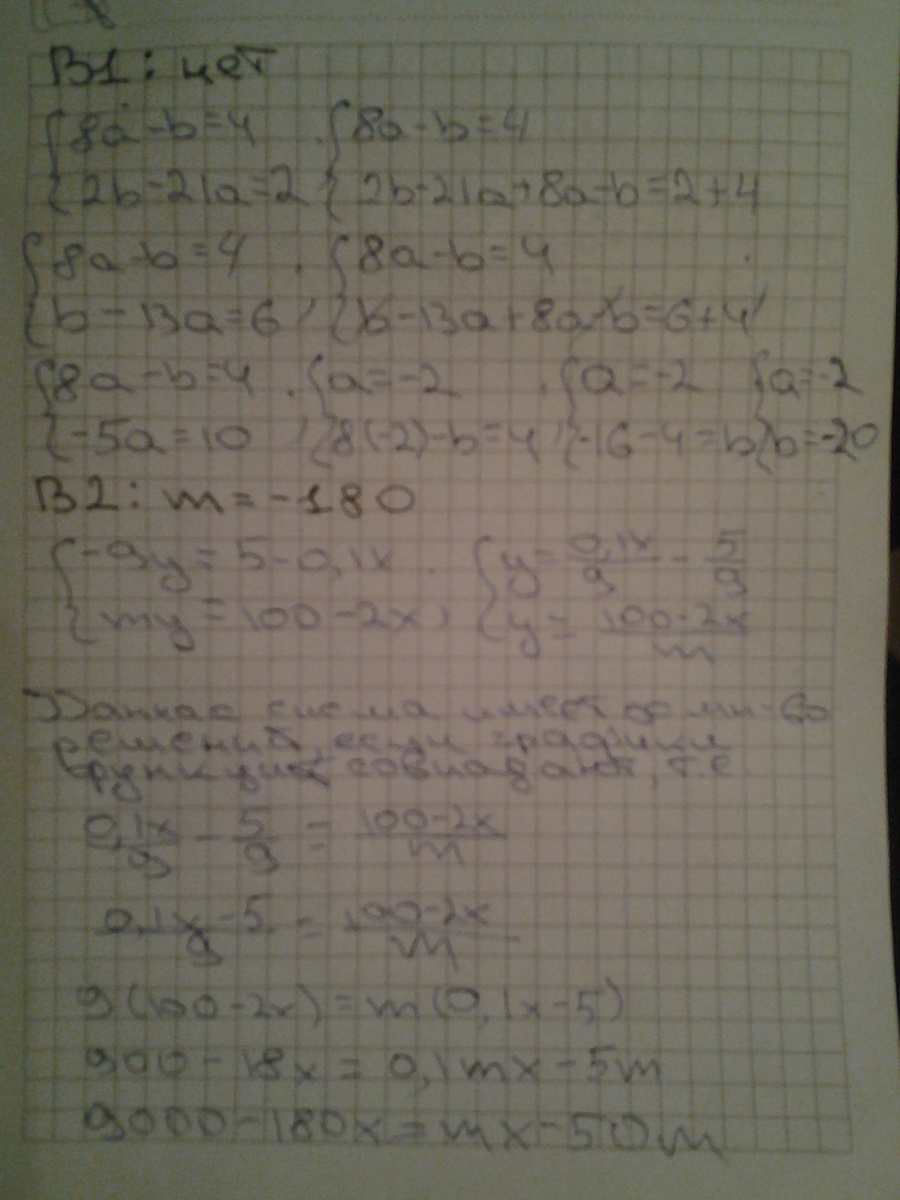 В1: нет
{8a-b=4 . {8a-b=4
{2b-21a=2 {2b-21a+8a-b=2+4
{8a-b=4 . {8a-b=4 .
{b-13a=6 , {b-13a+8a-b=6+4 ,
{8a-b=4 . {a=-2 . {a=-2 {a=-2
{-5a=10 , {8(-2)-b=4 , {-16-4=b {b=-20
В2: m=-180
{-9y=5-0,1x . {y=0,1x/9 - 5/9
{my=100-2x , {y=100-2x/m
Данная система имеет ∞ мн-во
решений, если графики
функций совпадают, т.е.
0,1x/9 - 5/9 = 100-2x/m
0,1x-5/9 = 100-2x/m
9(100-2x)=m(0,1x-5)
900-18x=0,1mx-5m
9000-180x=mx-50m